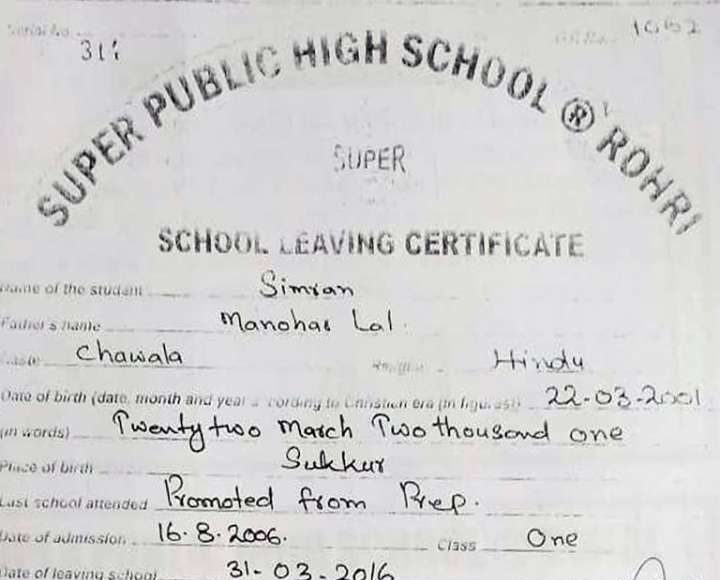 Serial No. 311
G.R.No. 1062
SUPER PUBLIC HIGH SCHOOL ® ROHRI
SUPER
SCHOOL LEAVING CERTIFICATE
Name of the student Simran
Father's name Manohar Lal.
Caste Chawala Religion Hindu
Date of birth (date, month and year according to Christian era (in figures)) 22-03-2001
(in words) Twenty two March Two thousand one
Place of birth Sukkur
Last school attended Promoted from Prep.
Date of admission 16.8.2006. Class One
Date of leaving school 31-03-2016